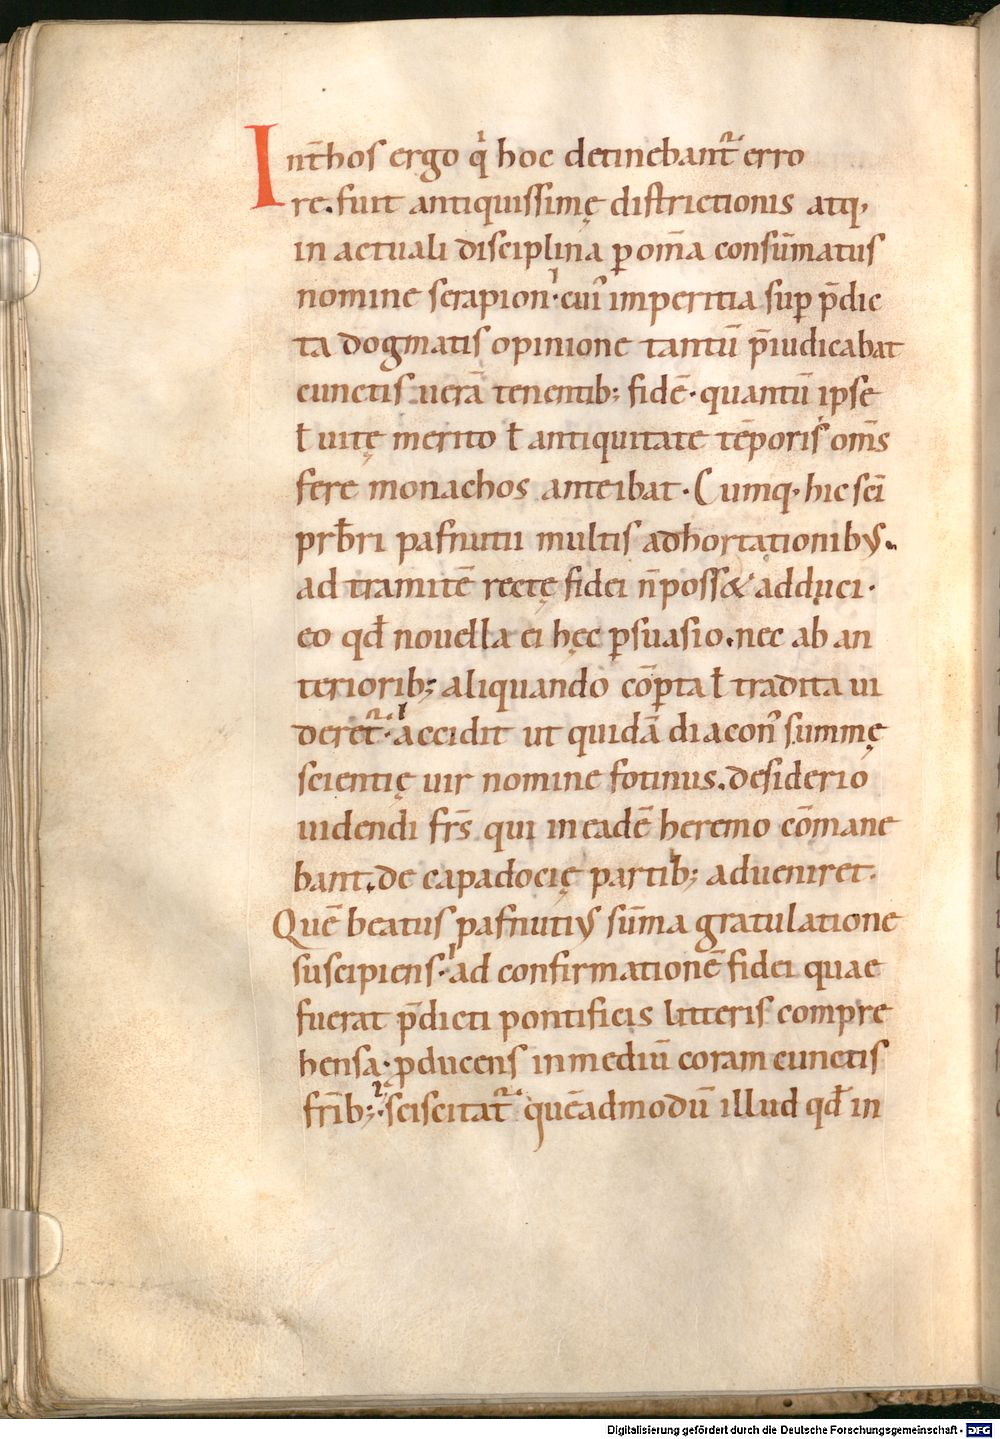 Int̄hos ergo q̇ hoc detinebant᷑ erro
re. fuit antiquissimę districtionis atq,
in actuali disciplina p̱ om̄a consūmatus
nomine serapion·cui᾽ imperitia sup̱ p̄dic
ta dogmatis opinione tantū p̄iudicabat
cunctis uerā tenentib; fidē· quantū ipse
ƚ uitę merito ƚ antiquitate tēporis om̄s
fere monachos anteibat· Cumq, hic sc̄i
prƀri pafnutii multis adhortationibꝰ.
ad tramitē rectę fidei n̄ poss& adduci·
eo qđ nouella ei hęc p̱suasio. nec ab an
teriorib; aliquando cōp̱ta ƚ tradita ui
deret᷑· accidit ut quidā diacon᾽ summę
scientię uir nomine fotinus. desiderio
uidendi frs̄ qui in eadē heremo cōmane
bant. de capadocię partib; adueniret.
Quē beatus pafnutiꝰ sūma gratulatione
suscipiens· ad confirmationē fidei quae
fuerat p̄dicti pontificis litteris compre
hensa· ꝓducens in mediū coram cunctis
fr̄ib; sciscitat᷑ quēadmodū illud qđ in
Digitalisierung gefördert durch die Deutsche Forschungsgemeinschaft - DFG